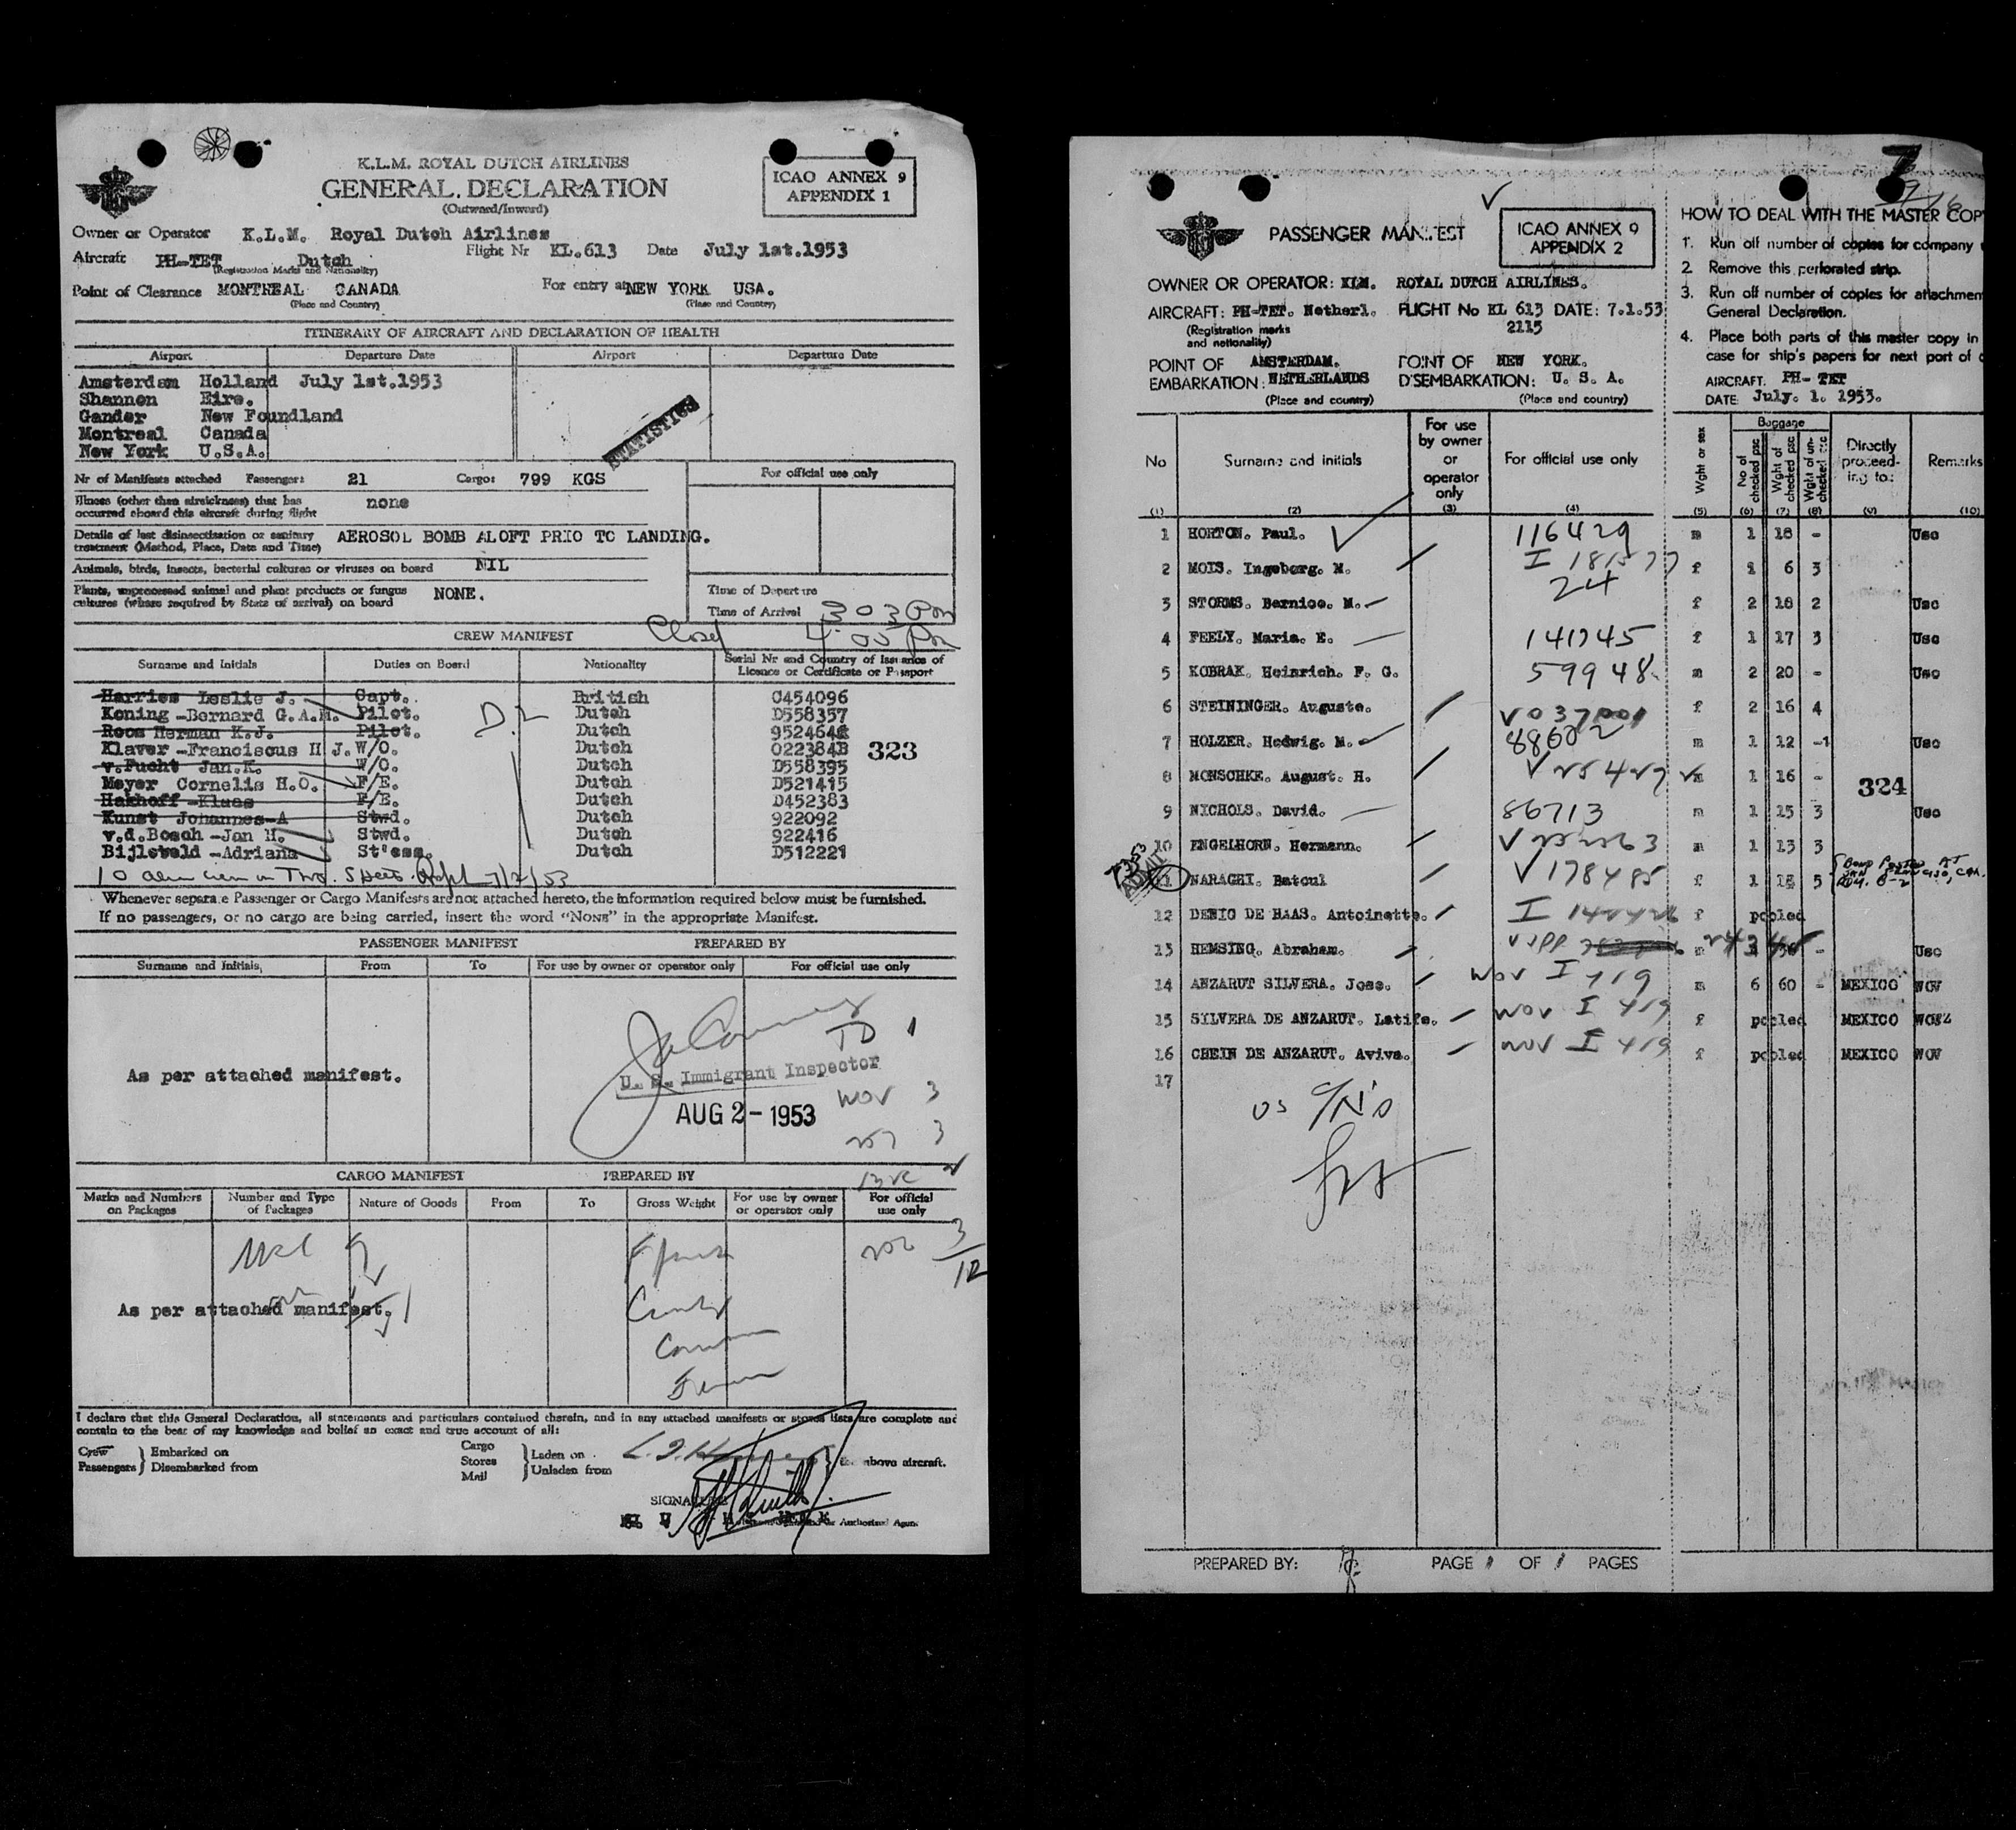 K.L.M. ROYAL DUTCH AIRLINES
GENERAL DECLARATION
(Outward/Inward)
ICAO ANNEX 9
APPENDIX 1
Owner or Operator K.L.M. Royal Dutch Airlines
Aircraft PH-TET Dutch Flight Nr KL.613 Date July 1st.1953
(Registration Marks and Nationality)
Point of Clearance MONTREAL CANADA For entry at NEW YORK USA.
(Place and Country) (Place and Country)
ITINERARY OF AIRCRAFT AND DECLARATION OF HEALTH
Airport Departure Date Airport Departure Date
Amsterdam Holland July 1st.1953
Shannon Eire.
Gander New Foundland
Montreal Canada
New York U.S.A.
STATISTICS
Nr of Manifests attached Passenger: 21 Cargo: 799 KGS
For official use only
Illness (other than airsickness) that has
occurred aboard this aircraft during flight none
Details of last disinsectisation or sanitary
treatment (Method, Place, Date and Time) AEROSOL BOMB ALOFT PRIO TO LANDING.
Animals, birds, insects, bacterial cultures or viruses on board NIL
Plants, unprocessed animal and plant products or fungus
cultures (where required by State of arrival) on board NONE.
Time of Departure
Time of Arrival 303 Pm
Closed 4.00 Pm
CREW MANIFEST
Surname and Initials Duties on Board Nationality Serial Nr and Country of Issuance of
Licence or Certificate or Passport
Harries Leslie J. Capt. British C454096
Koning-Bernard G.A.M. Pilot. Dutch D558357
Roos Herman K.J. Pilot. Dutch 952464
Klaver-Franciscus H J. W/O. Dutch 022384B
323
v.Fucht Jan.K. W/O. Dutch D558395
Meyer Cornelis H.O. F/E. Dutch D521415
Hakhoff-Klaas F/E. Dutch D452383
Kunst Johannes-A Stwd. Dutch 922092
v.d.Bosch-Jan H. Stwd. Dutch 922416
Bijleveld-Adriana St'ess. Dutch D512221
D.2
Whenever separate Passenger or Cargo Manifests are not attached hereto, the information required below must be furnished.
If no passengers, or no cargo are being carried, insert the word "NONE" in the appropriate Manifest.
PASSENGER MANIFEST PREPARED BY
Surname and Initials, From To For use by owner or operator only For official use only
TD 1
As per attached manifest.
U. S. Immigrant Inspector
WOV 3
AUG 2- 1953
CARGO MANIFEST PREPARED BY
Marks and Numbers
on Packages
Number and Type
of Packages
Nature of Goods From To Gross Weight
For use by owner
or operator only
For official
use only
As per attached manifest.
I declare that this General Declaration, all statements and particulars contained therein, and in any attached manifests or stores lists are complete and
contain to the best of my knowledge and belief an exact and true account of all:
Crew
Passengers
Embarked on
Disembarked from
Cargo
Stores
Mail
Laden on
Unladen from
the above aircraft.
SIGNATURE
Authorized Agent
7
PASSENGER MANIFEST
ICAO ANNEX 9
APPENDIX 2
OWNER OR OPERATOR: KLM. ROYAL DUTCH AIRLINES.
AIRCRAFT: PH-TET. Netherl. FLIGHT No KL 613 DATE: 7.1.53
(Registration marks
and nationality) 2115
POINT OF
EMBARKATION: AMSTERDAM.
NETHERLANDS
POINT OF
DISEMBARKATION: NEW YORK.
U. S. A.
(Place and country) (Place and country)
HOW TO DEAL WITH THE MASTER COP
1. Run off number of copies for company
2. Remove this perforated strip.
3. Run off number of copies for attachmen
General Declaration.
4. Place both parts of this master copy in
case for ship's papers for next port of
AIRCRAFT: PH-TET
DATE: July. 1. 1953.
No Surname and initials For use
by owner
or
operator
only For official use only
Wght or sex
Baggage
No of checked psc
Wght of checked psc
Wght of un-checked psc
Directly
proceed-
ing to:
Remarks
(1) (2) (3) (4) (5) (6) (7) (8) (9) (10)
1 HORTON. Paul. 116429 m 1 18 - Usc
2 MOIS. Ingeborg. M. I 181577 f 1 6 3
24
3 STORMS. Bernice. M. f 2 18 2 Usc
4 FEELY. Maria. E. 141745 f 1 17 3 Usc
5 KOBRAK. Heinrich. F. G. 59948 m 2 20 - Usc
6 STEININGER. Auguste. f 2 16 4
7 HOLZER. Hedwig. M. 88602 m 1 12 -1 Usc
8 MONSCHKE. August. H. m 1 16 -
324
9 NICHOLS. David. 86713 m 1 15 3 Usc
10 ENGELHORN. Hermann. m 1 13 3
11 NARAGHI. Batoul V178485 f 1 18 5
12 DENIG DE HAAS. Antoinette. f pooled
13 HEMSING. Abraham. m - Usc
14 ANZARUT SILVERA. Jose. WOV I 419 m 6 60 - MEXICO WOV
15 SILVERA DE ANZARUT. Latife. WOV I 419 f pooled MEXICO
16 CHEIN DE ANZARUT. Aviva. WOV I 419 f pooled MEXICO WOV
17
PREPARED BY: PAGE 1 OF 1 PAGES